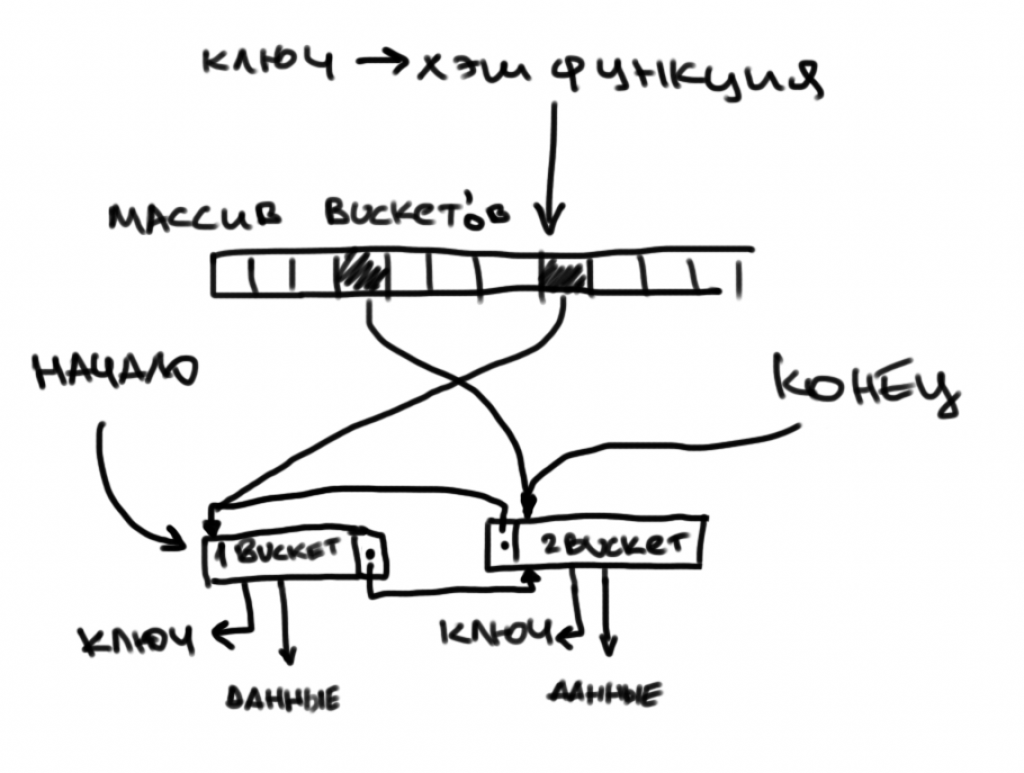 КЛЮЧ → ХЭШ ФУНКЦИЯ
МАССИВ BUCKET'ОВ
НАЧАЛО
КОНЕЦ
1 BUCKET
2 BUCKET
КЛЮЧ
КЛЮЧ
ДАННЫЕ
ДАННЫЕ